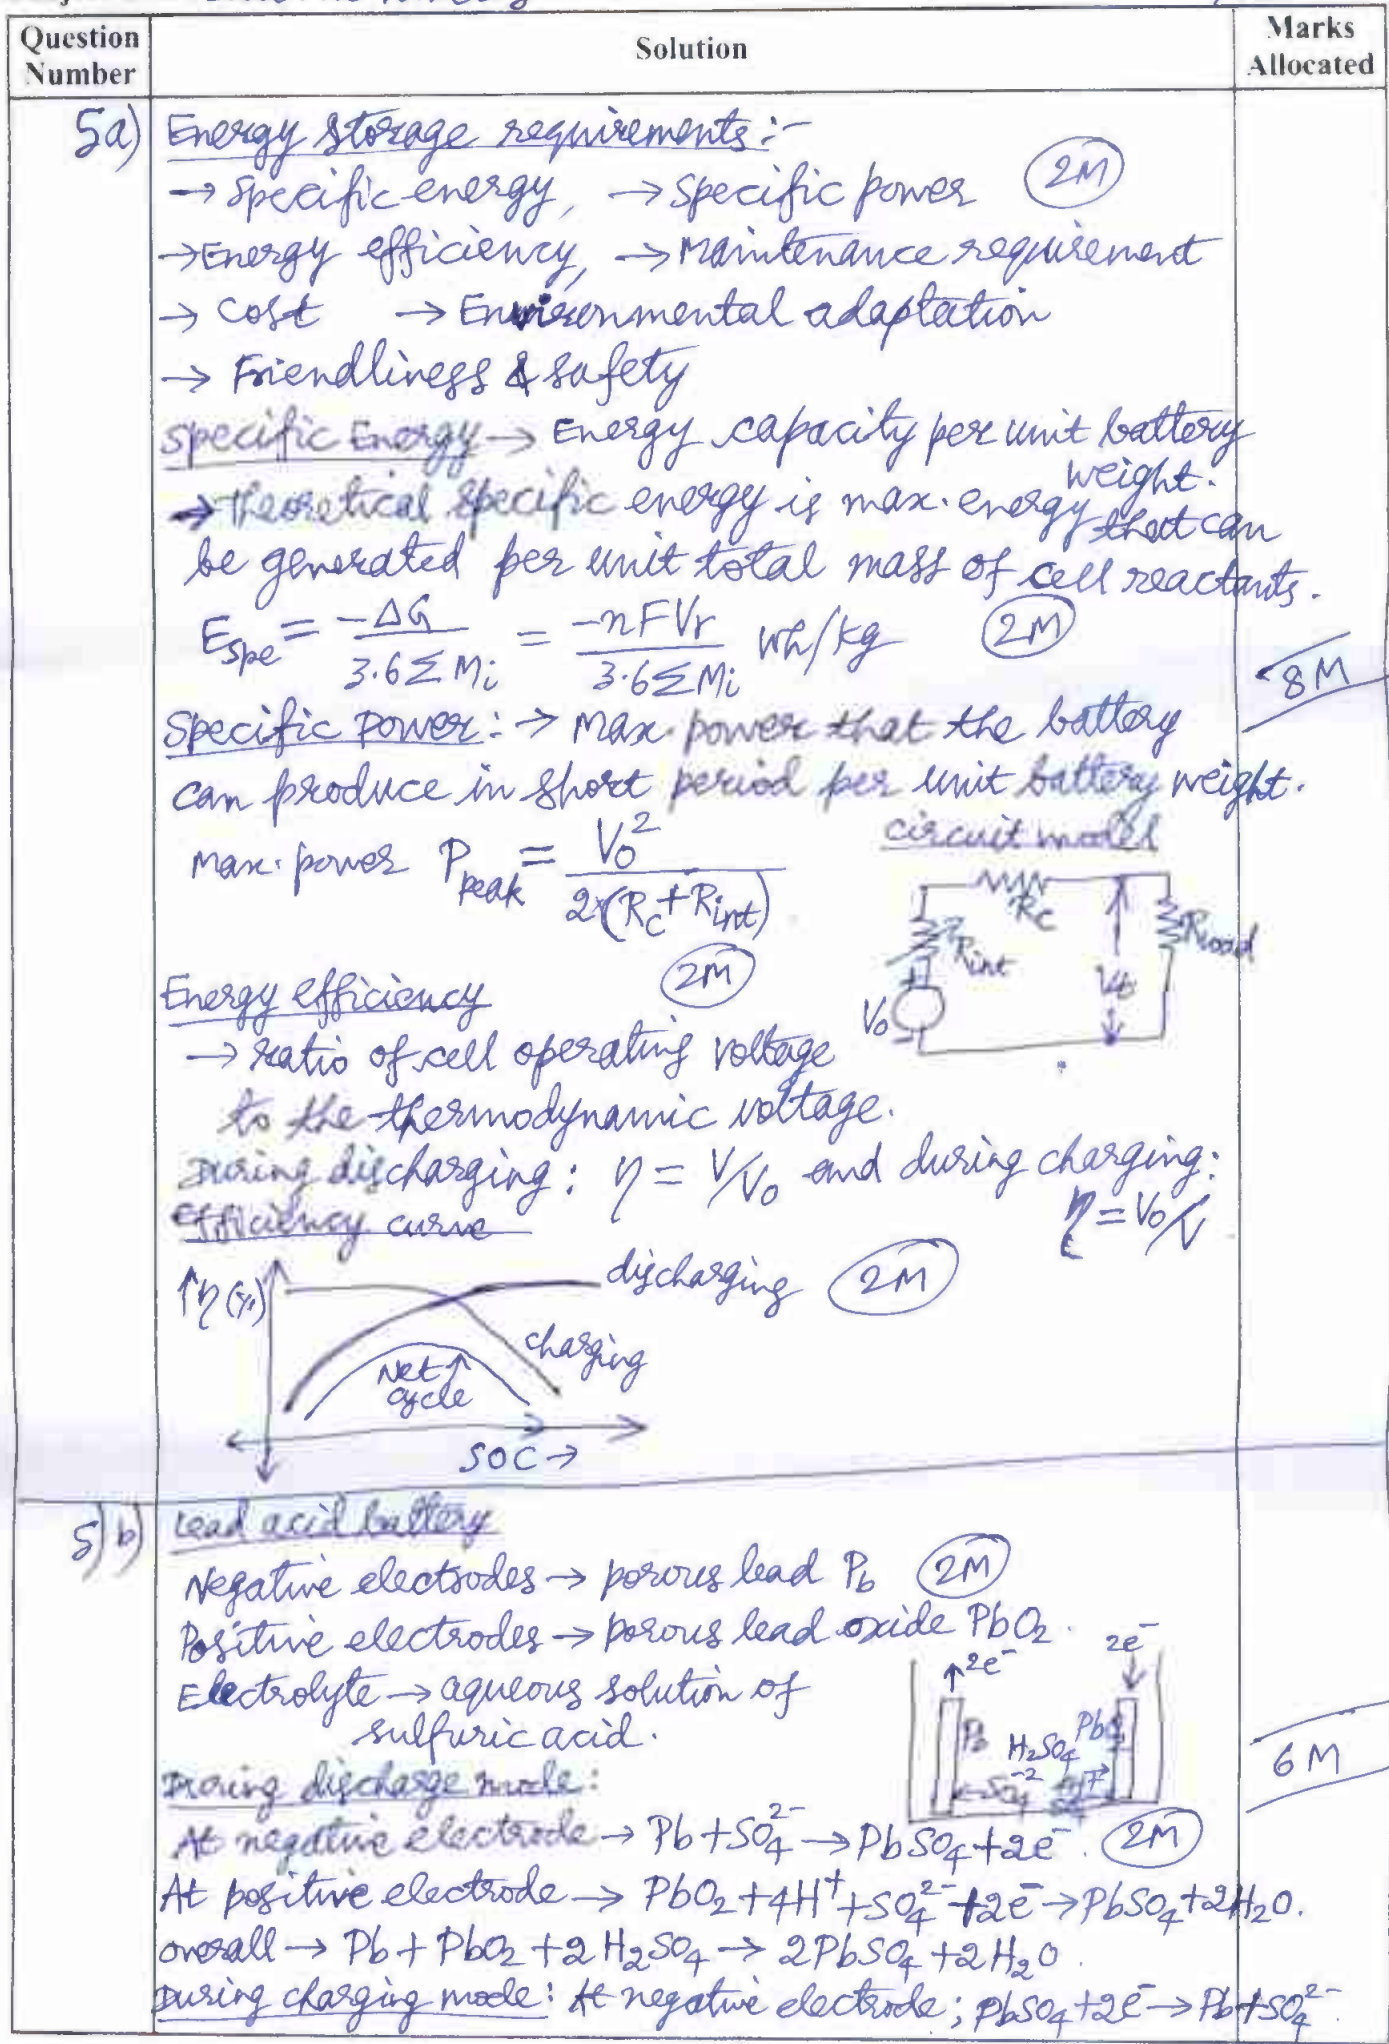 Question Number
Solution
Marks Allocated
5a)
Energy storage requirements:-
→ Specific energy, → Specific power (2M)
→ Energy efficiency, → Maintenance requirement
→ Cost → Environmental adaptation
→ Friendliness & safety
Specific Energy → Energy capacity per unit battery weight.
→ theoretical specific energy is max. energy that can
be generated per unit total mass of cell reactants.
E_spe = -ΔG / 3.6 Σ M_i = -nFVr / 3.6 Σ M_i Wh/kg (2M)
8M
Specific power: → Max. power that the battery
can produce in short period per unit battery weight.
Max. power P_peak = V₀² / 2(R_c + R_int)
circuit model
R_c
R_int
R_load
V₀
(2M)
Energy efficiency
→ ratio of cell operating voltage
to the thermodynamic voltage.
During discharging: η = V/V₀ and during charging:
η = V₀/V
Efficiency curve
↑η (%)
discharging (2M)
charging
Net cycle
SOC →
5) b)
Lead acid battery
Negative electrodes → porous lead Pb (2M)
Positive electrodes → porous lead oxide PbO₂.
2e⁻
↑2e⁻
Electrolyte → aqueous solution of
sulfuric acid.
H₂SO₄
6M
During discharge mode:
At negative electrode → Pb + SO₄²⁻ → PbSO₄ + 2e⁻. (2M)
At positive electrode → PbO₂ + 4H⁺ + SO₄²⁻ + 2e⁻ → PbSO₄ + 2H₂O.
overall → Pb + PbO₂ + 2H₂SO₄ → 2PbSO₄ + 2H₂O.
During charging mode: At negative electrode; PbSO₄ + 2e⁻ → Pb + SO₄²⁻